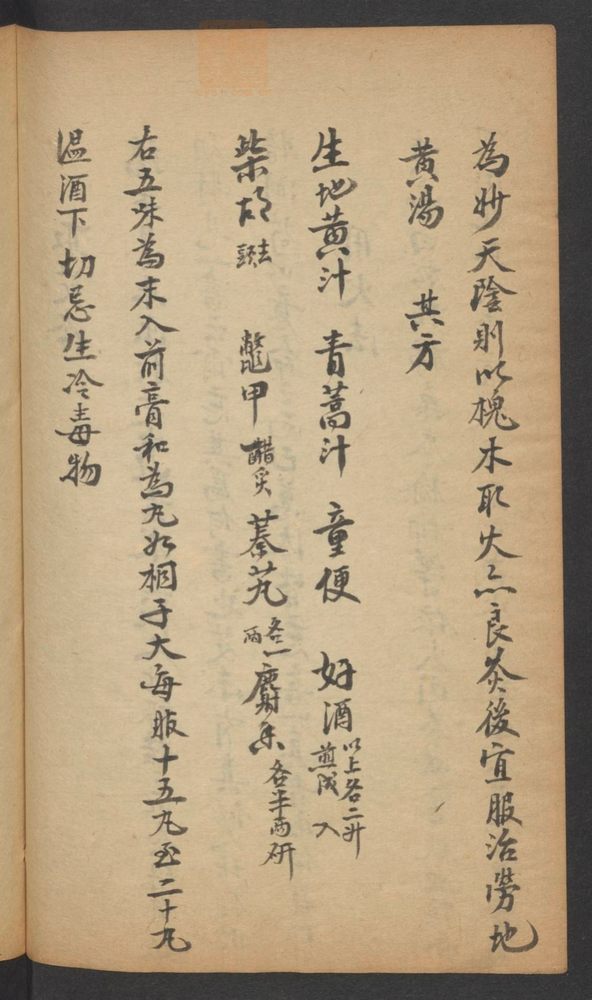 為妙天陰則以槐木取火亦良灸後宜服治勞地
黃湯　其方
生地黃汁　青蒿汁　童便　好酒以上各二升煎成入
柴胡去頭　鱉甲醋炙　蓁艽各一兩　麝香各半兩研
右五味為末入前膏和為丸如梧子大每服十五丸至二十丸
温酒下切忌生冷毒物